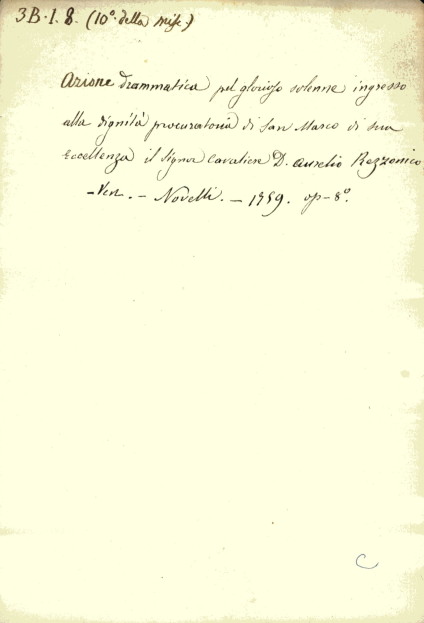 3B.1.8. (10º della misc.)
Azione drammatica pel glorioso solenne ingresso
alla dignità procuratoria di San Marco di sua
eccellenza il signor cavaliere D. Aurelio Rezzonico
- Ven. - Novelli. - 1759. op- 8º.
C